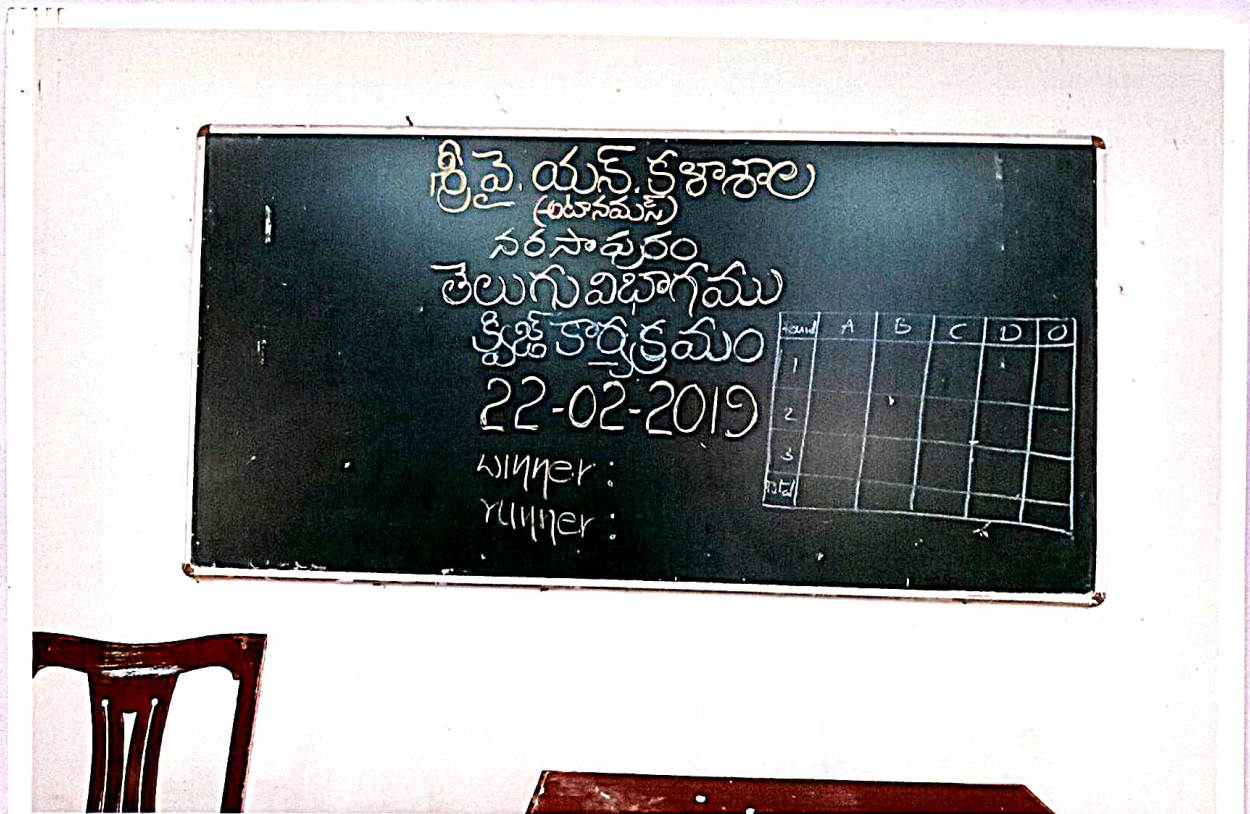 శ్రీ వై. యన్. కళాశాల
(అటానమస్)
నరసాపురం
తెలుగు విభాగము
క్విజ్ కార్యక్రమం
22-02-2019
winner :
runner :
round A B C D O
1
2
3
Total